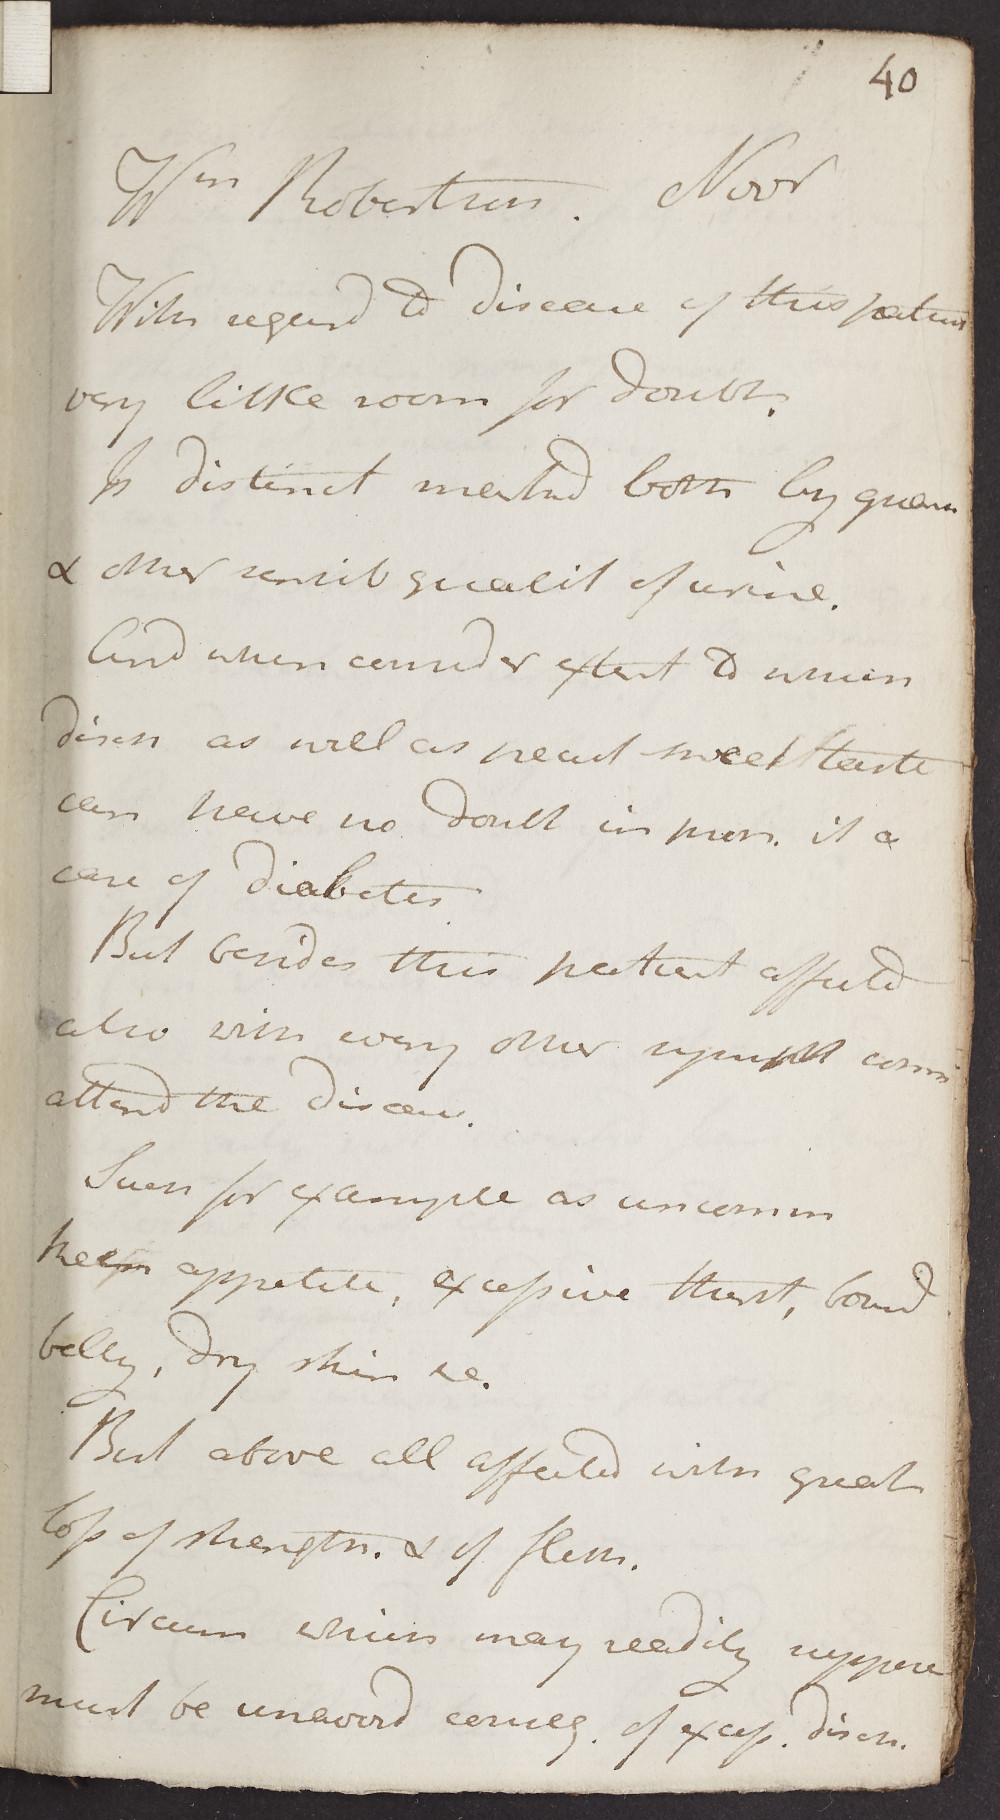 40
Wm Robertson. Novr
With regard to disease of this patient
very little room for doubt.
Is distinct marked both by quan
& other sensib qualit of urine.
And when consider extent to which
disch as well as pecul sweet taste
can have no doubt in pron. it a
case of diabetes
But besides this patient affected
also with every other sympt comm
attend the disease.
Such for example as uncomm
keen appetite, excessive thirst, bound
belly, dry skin &c.
But above all affected with great
loss of strength. & of flesh.
Circum which may readily suppose
must be unavoid conseq. of excess. disch.